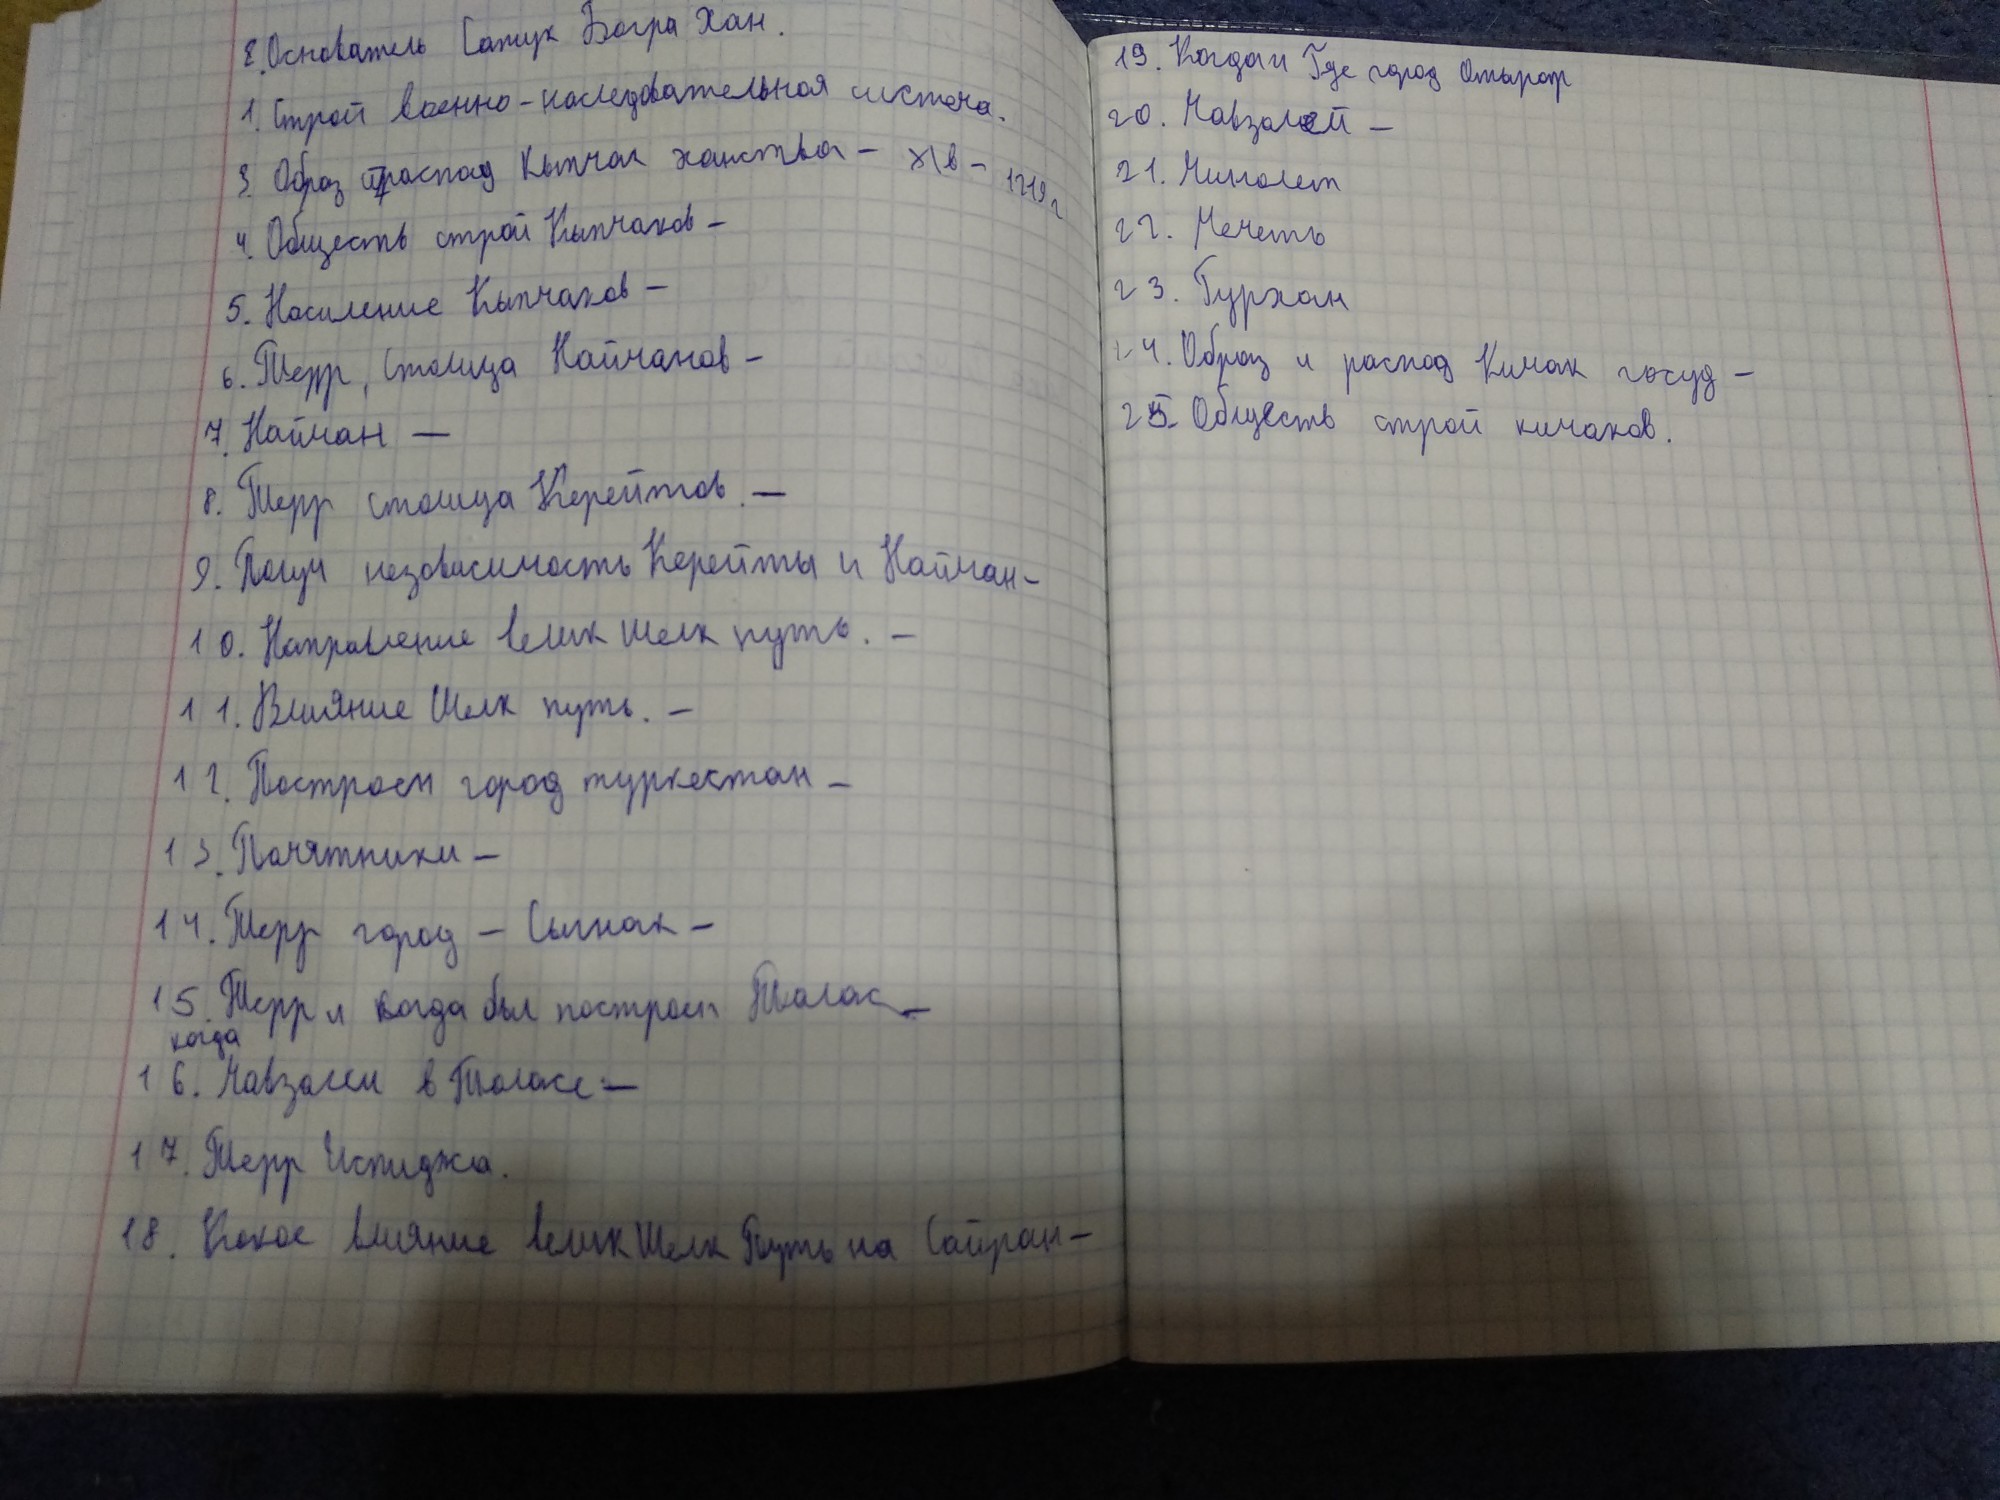 2. Основатель Сатук Богра Хан.
1. Строй военно-наследовательная система.
3. Образ и распад Кыпчак ханства – XI в – 1219 г
4. Обществ строй Кыпчаков –
5. Насиление Кыпчаков –
6. Терр, столица Найманов –
7. Найман –
8. Терр столица Керейтов. –
9. Получ незовасимость Керейты и Найман –
10. Направление велик шелк путь. –
11. Влияние Шелк путь. –
12. Построен город туркестан –
13. Памятники –
14. Терр город – Сыгнак –
15. Терр и когда был построен Талас –
когда
16. Мавзолеи в Таласе: –
17. Терр Испиджа.
18. Какое влияние велик Шелк Путь на Сайран –
19. Когда и Где город Отырар
20. Мавзолей –
21. Минолет
22. Мечеть
23. Гурхан
24. Образ и распад Кимак госуд –
25. Обществ строй кимаков.